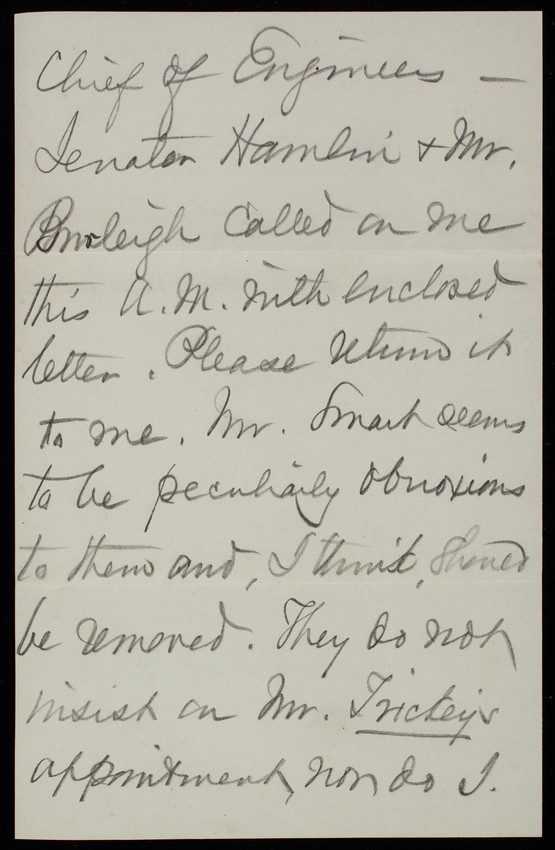 Chief of Engineers —
Senator Hamlin & Mr.
Burleigh called on me
this A.M. with enclosed
letter. Please return it
to me. Mr. Smart seems
to be peculiarly obnoxious
to them and, I think, should
be removed. They do not
insist on Mr. Trickeys
appointment, nor do I.